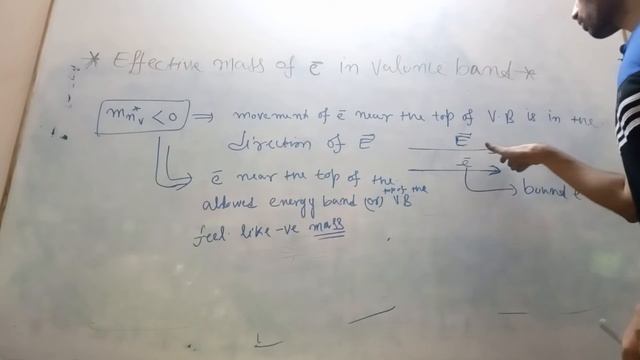 * Effective mass of ē in Valunce band *
mn*v < 0 ⇒ movement of ē near the top of V.B is in the
direction of E⃗
E⃗
ē
bound e
ē near the top of the
allowed energy band (or) top of the VB
feel like -ve mass